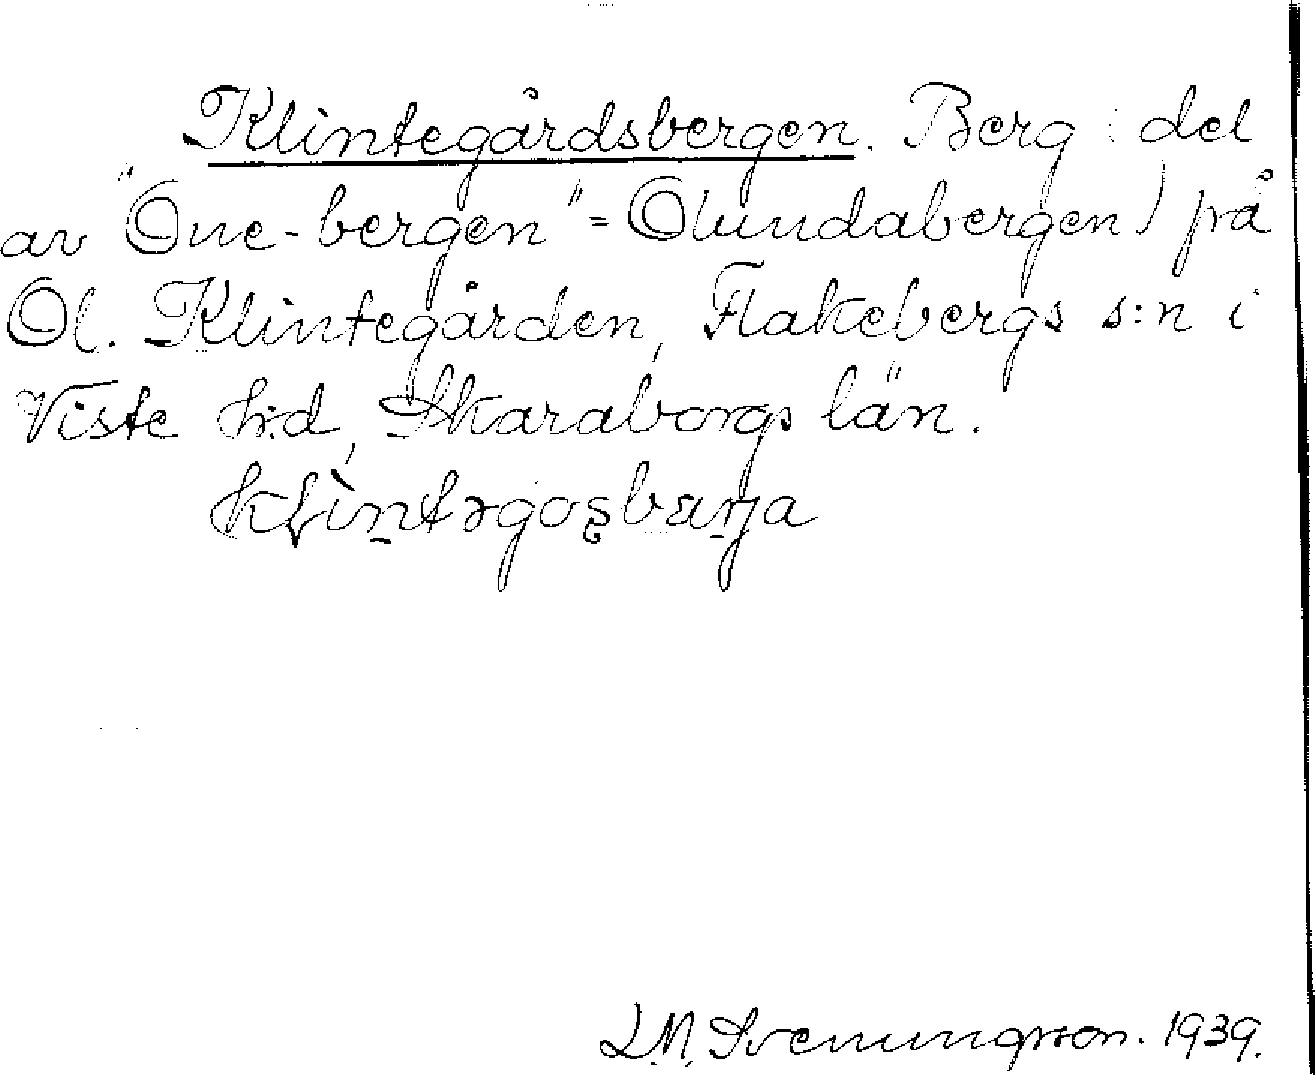 Klintegårdsbergen. Berg (del
av "One-bergen" = Olundabergen) på
Ol. Klintegården, Flakebergs s:n i
Viste hrd, Skaraborgs län.
L.M. Svenungsson. 1939.